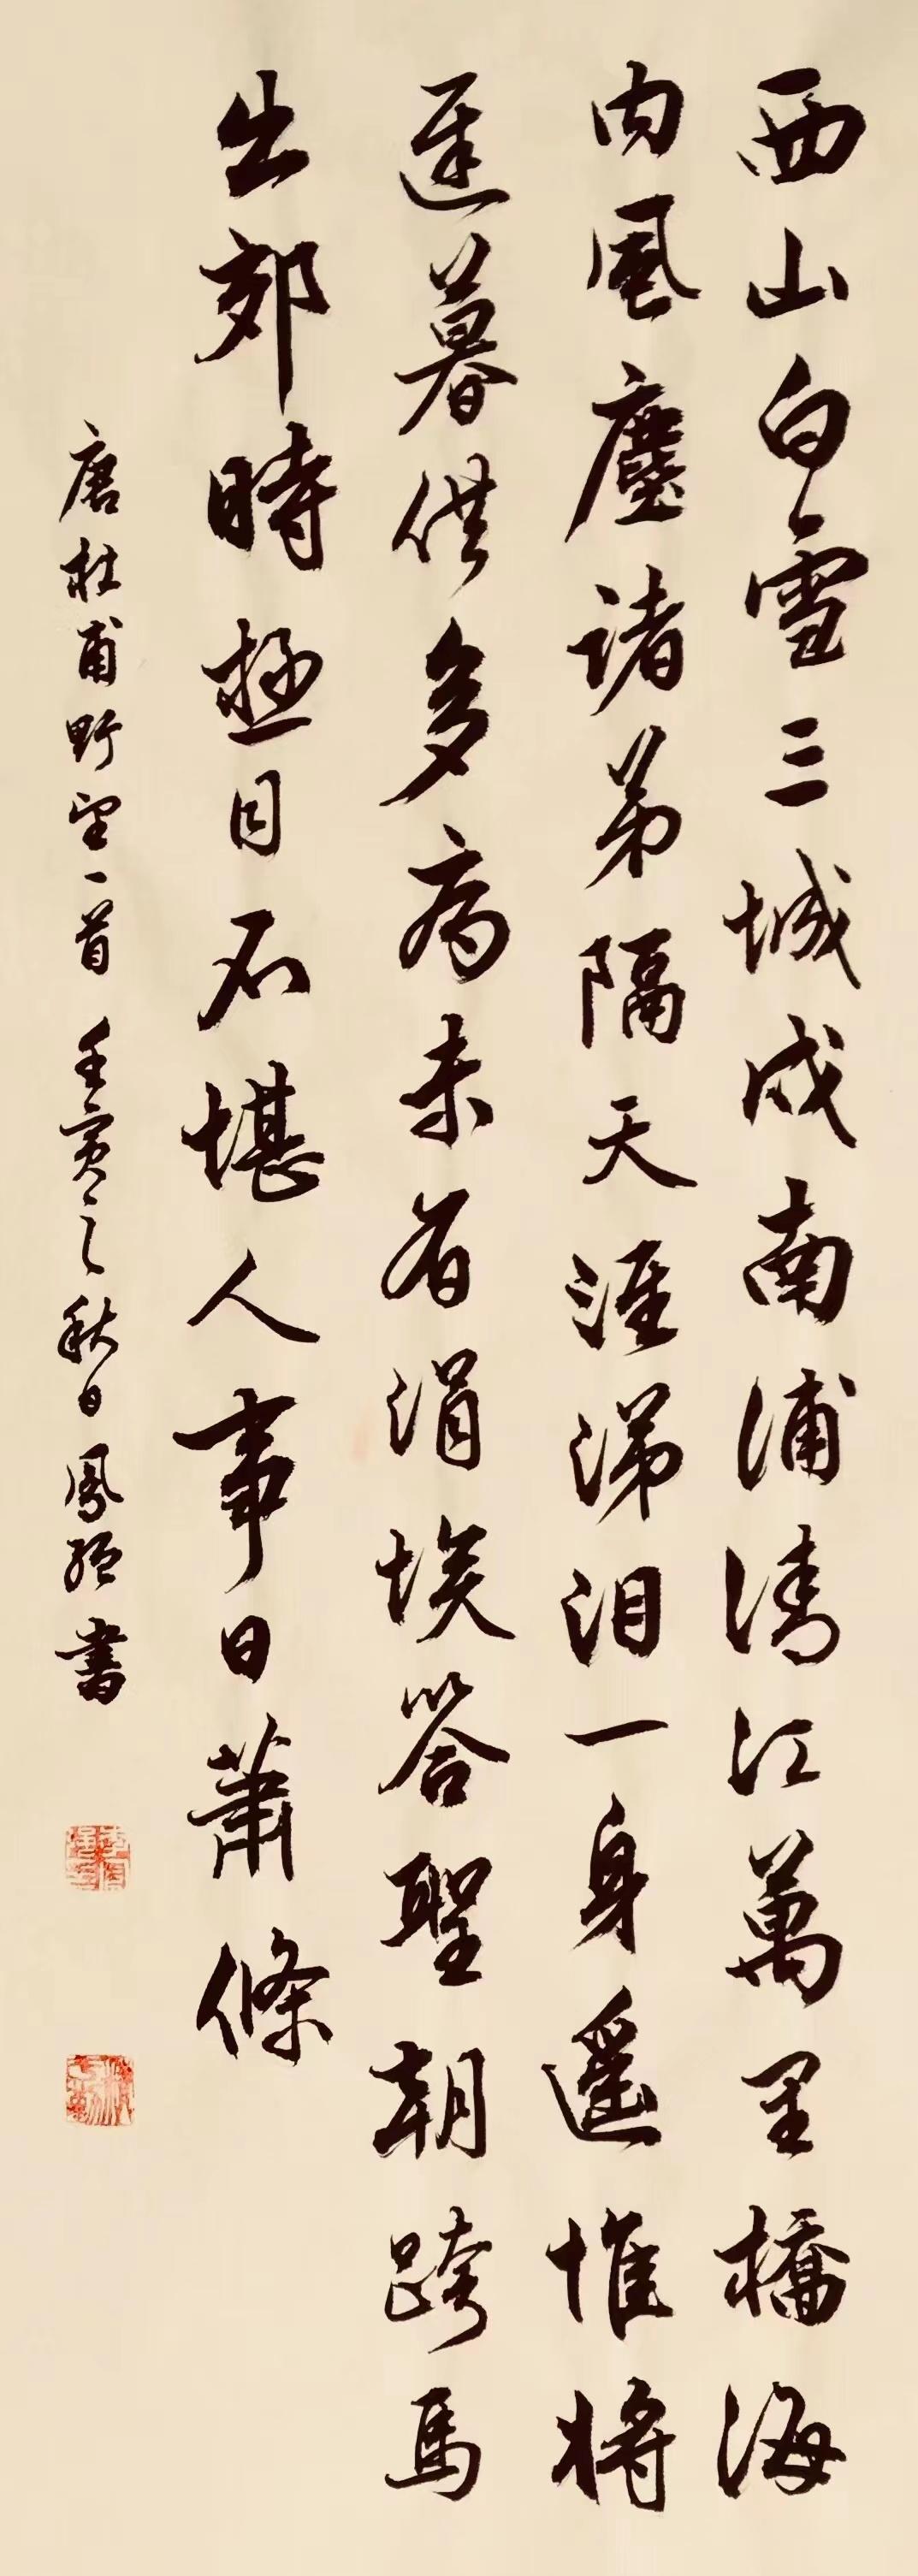 西山白雪三城戍南浦清江萬里橋海
内風塵諸弟隔天涯涕泪一身遥惟將
遲暮供多病未有涓埃答聖朝跨馬
出郊時極目不堪人事日蕭條
唐杜甫野望一首 壬寅之秋日鳳書